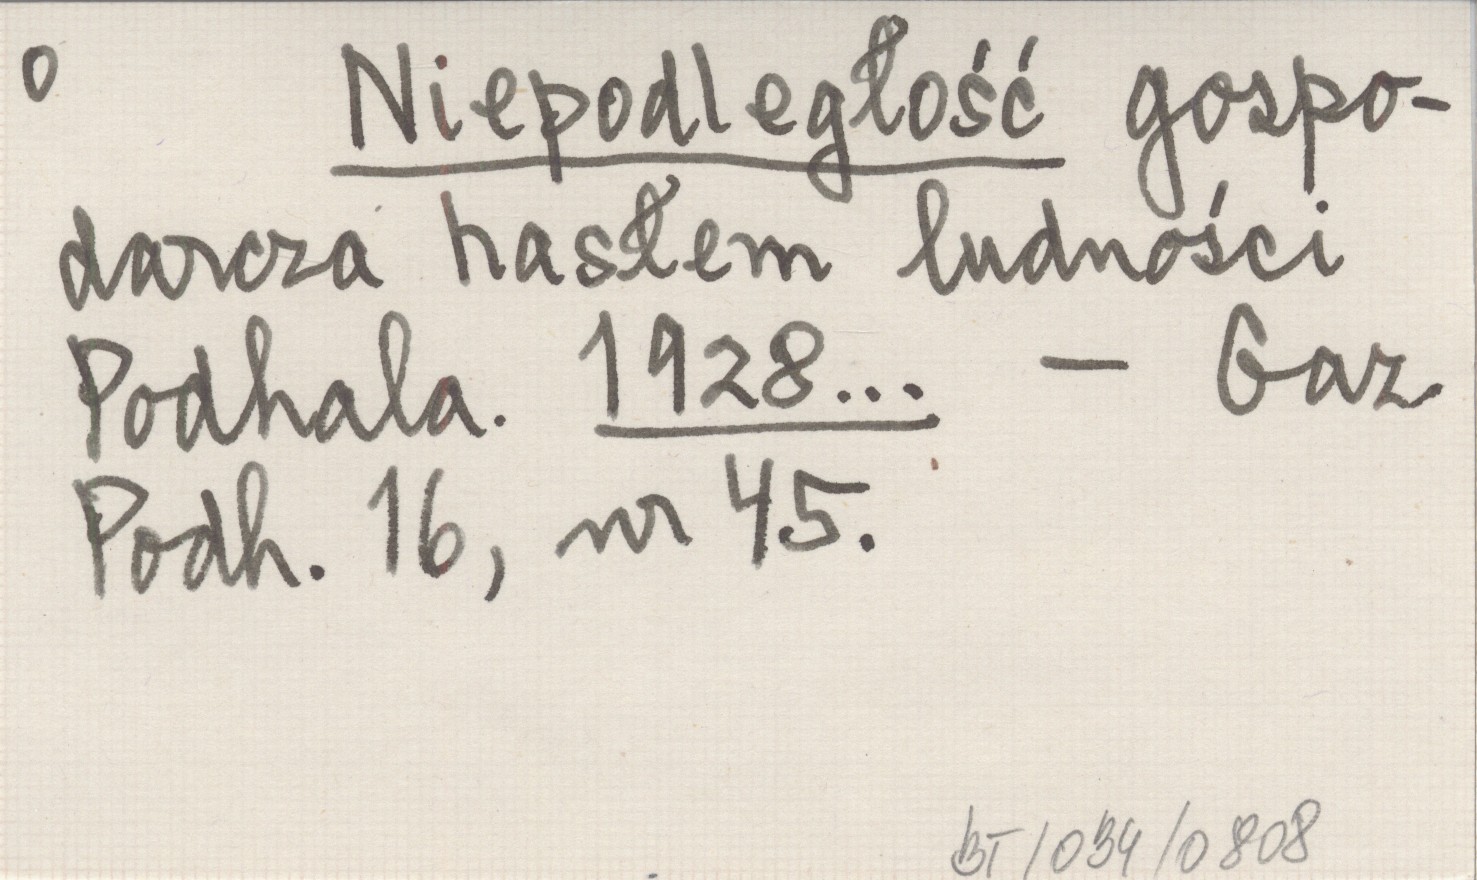 o Niepodległość gospo-
darcza hasłem ludności
Podhala. 1928... — Gaz.
Podh. 16, nr 45.
BT/034/0808